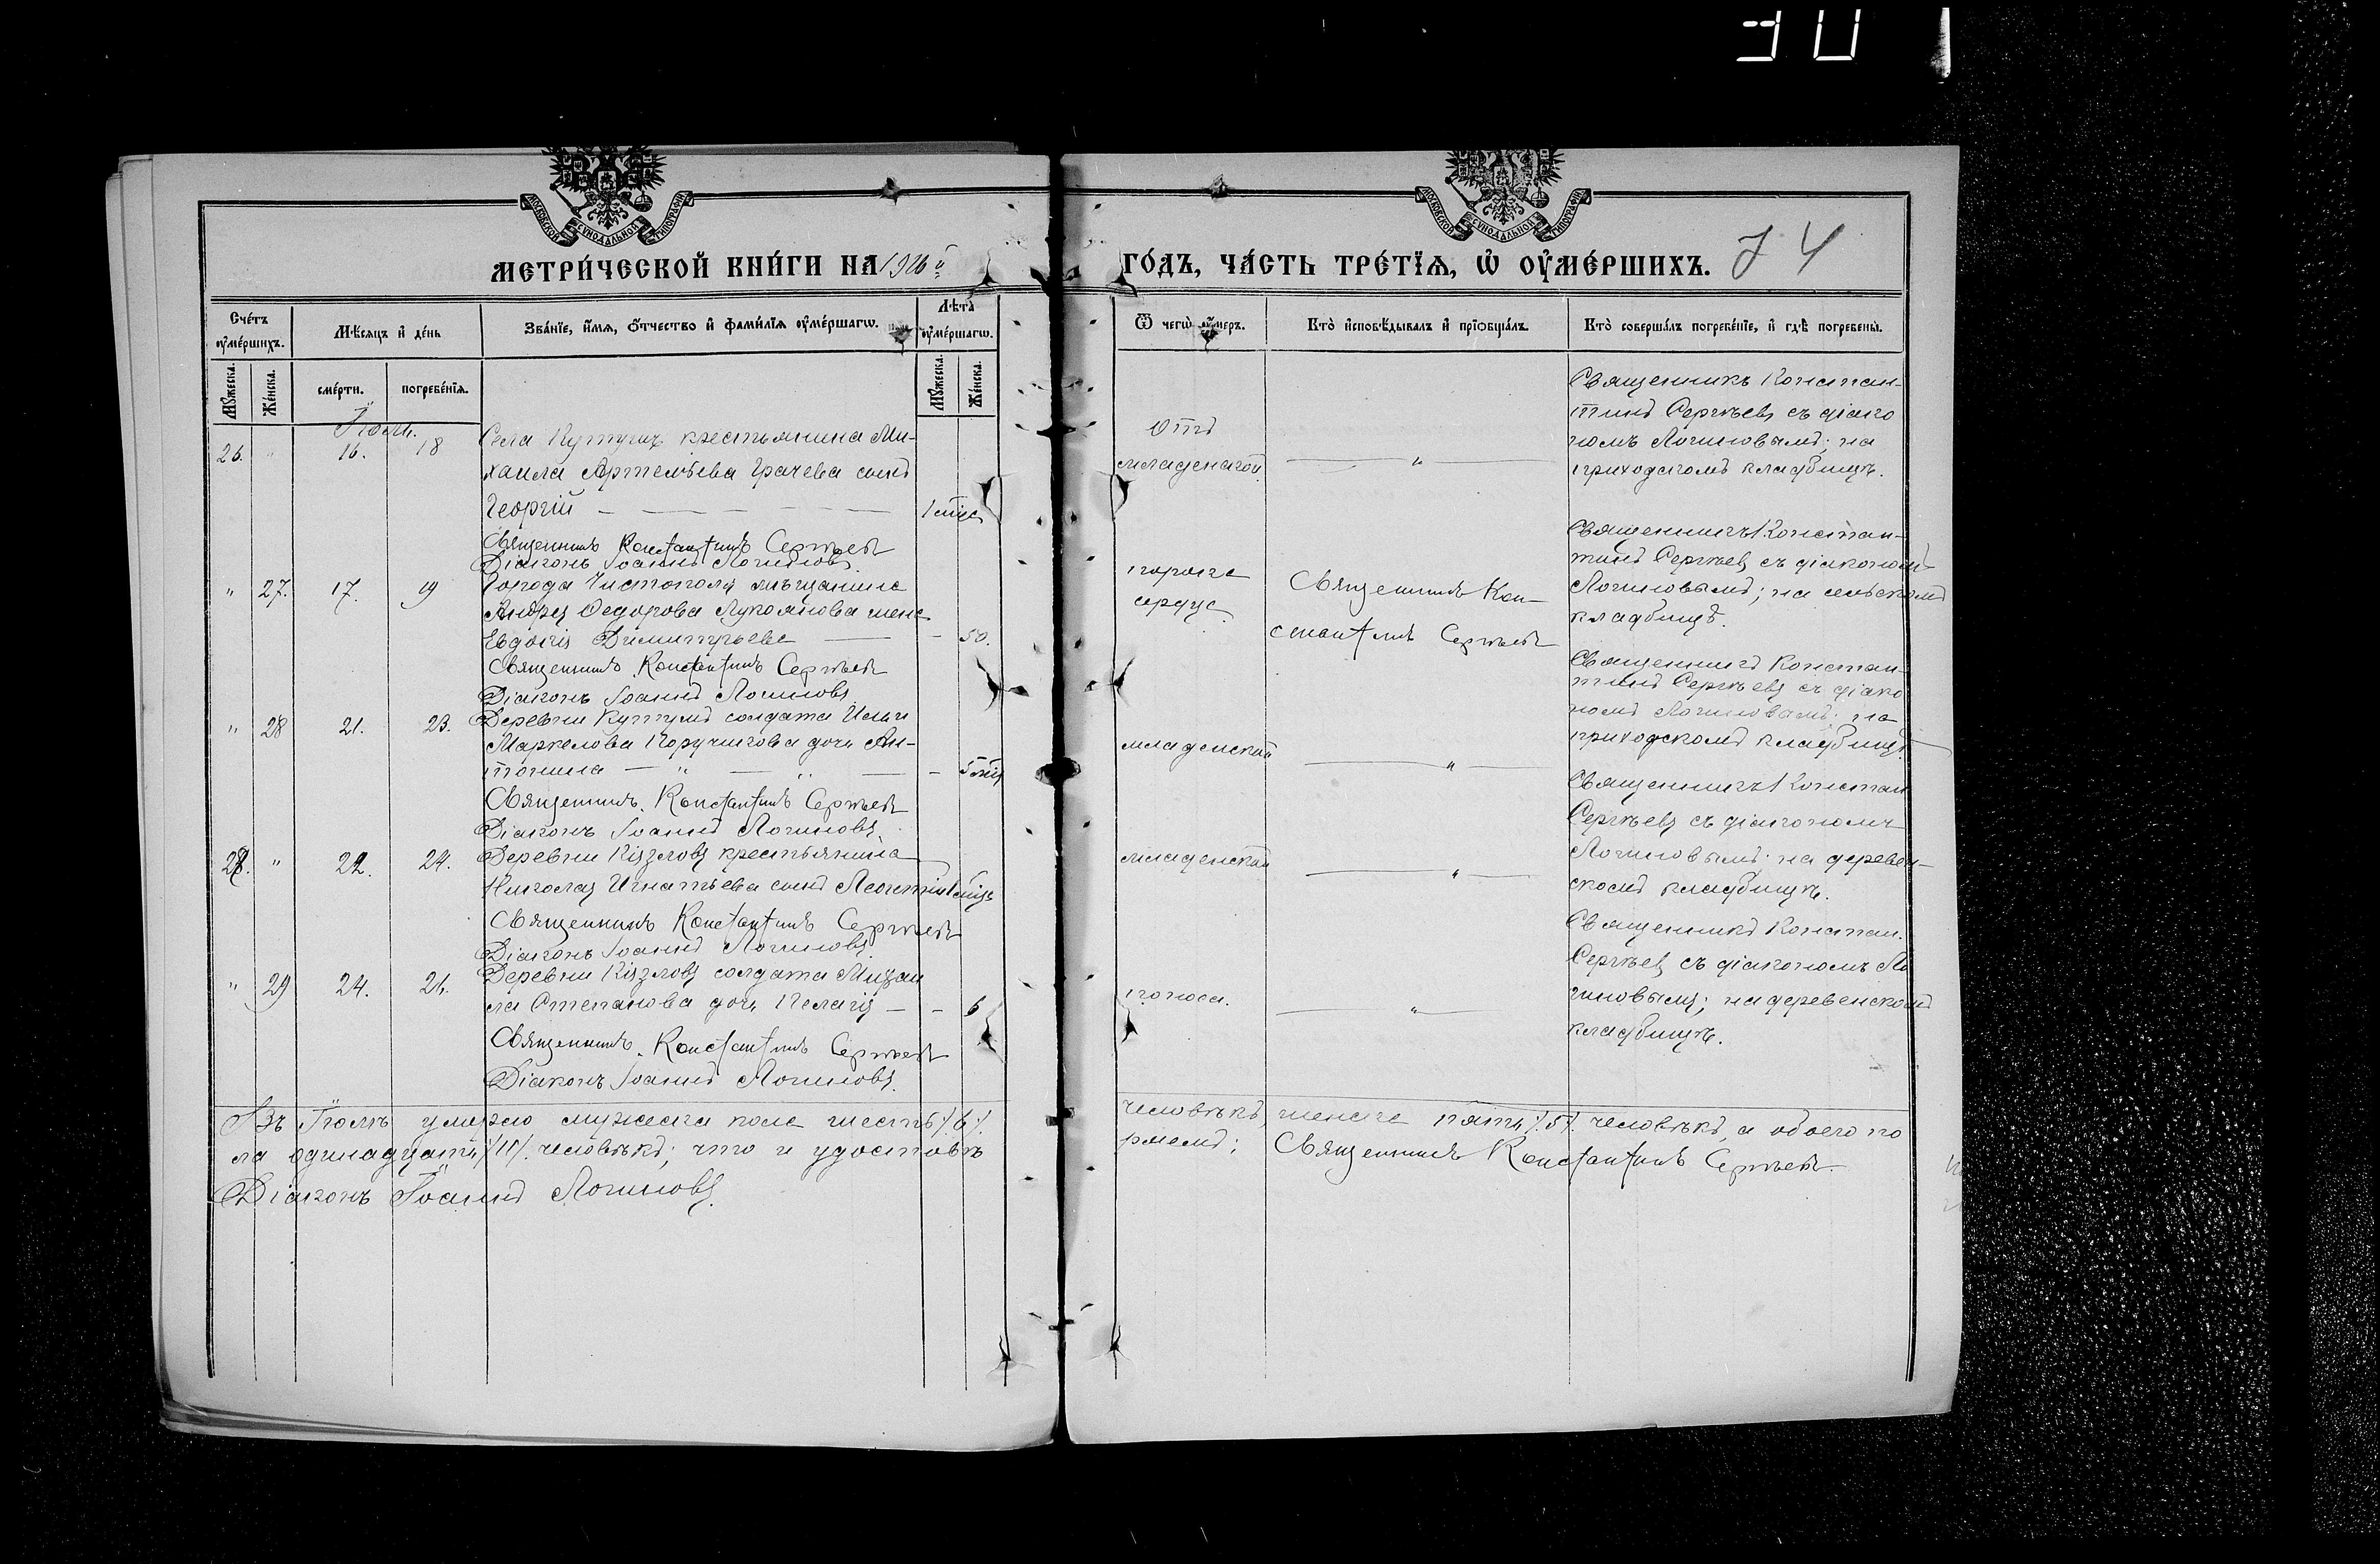 МОСКОВСКОЙ СѴНОДАЛЬНОЙ ТИПОГРАФІИ
МОСКОВСКОЙ СѴНОДАЛЬНОЙ ТИПОГРАФІИ
МЕТРИ́ЧЕСКОЙ КНИ́ГИ НА 1916й
ГО́ДЪ, ЧА́СТЬ ТРЕ́ТІѦ, Ѡ ОУ҆МЕ́РШИХЪ. 74
Сче́тъ оу҆ме́ршихъ.
Мѣ́сѧцъ и҆ де́нь
Зва́нїе, и҆́мѧ, ѻ҆́тчество и҆ фами́лїѧ оу҆ме́ршагѡ.
Лѣ́та оу҆ме́ршагѡ.
Ѿ чегѡ̀ оу҆́меръ.
Кто̀ и҆сповѣ́дывалъ и҆ прїѻбща́лъ.
Кто̀ соверша́лъ погребе́нїе, и҆ гдѣ̀ погребены̀.
Мꙋ́жеска.
Же́нска.
сме́рти.
погребе́нїѧ.
Мꙋ́жеска.
Же́нска.
Іюль.
26. " 16. 18
Села Кутушъ крестьянина Ми-
хаила Артемьева Грачева сынъ
Георгій
Священникъ Константинъ Сергѣевъ
Діаконъ Іоаннъ Логиновъ.
Отъ
младенской
"
Священникъ Констан-
тинъ Сергѣевъ съ діако
номъ Логиновымъ; на
приходскомъ кладбищѣ.
" 27. 17. 19
Города Чистополя мѣщанина
Андрея Федорова Лукоянова жена
Евдокія Димитріева - 50.
Священникъ Константинъ Сергѣевъ
Діаконъ Іоаннъ Логиновъ
порока
сердца.
Священникъ Кон-
стантинъ Сергѣевъ
Священникъ Констан-
тинъ Сергѣевъ съ діакономъ
Логиновымъ; на сельскомъ
кладбищѣ.
" 28 21. 23.
Деревни солдата Ильи
Маркелова Поручикова дочь Ан-
тонина - 5 мѣс
Священникъ Константинъ Сергѣевъ
Діаконъ Іоаннъ Логиновъ.
младенской
"
Священникъ Констан-
тинъ Сергѣевъ съ діако
номъ Логиновымъ; на
приходскомъ кладбищѣ.
28. " 22. 24.
Деревни Кізловъ крестьянина
Николая Игнатьева сынъ Леонтій 1 мѣсъ
Священникъ Константинъ Сергѣевъ
Діаконъ Іоаннъ Логиновъ.
младенской
"
Священникъ Констан
Сергѣевъ съ діакономъ
Логиновымъ; на деревен-
скомъ кладбищѣ.
" 29 24. 26.
Деревни Кізловъ солдата Михаи
ла Степанова дочь Пелагія - - 6
Священникъ Константинъ Сергѣевъ
Діаконъ Іоаннъ Логиновъ.
поноса.
"
Священникъ Констан.
Сергѣевъ съ діакономъ Ло
гиновымъ; на деревенскомъ
кладбищѣ.
Въ Іюлѣ умерло мужеска пола шесть /.6/. человѣкъ, женска пять /.5/. человѣкъ, а обоего по
ла одинадцать /11/. человѣкъ; что и удостовѣ
ряемъ: Священникъ Константинъ Сергѣевъ.
Діаконъ Іоаннъ Логиновъ.